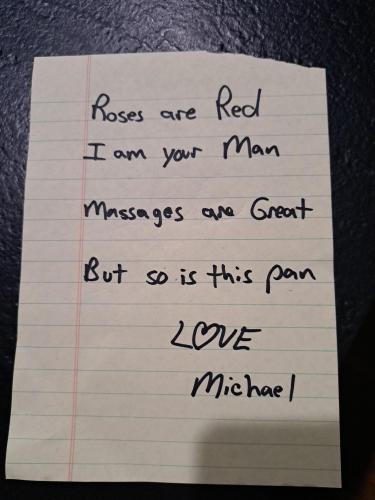 Roses are Red
I am your Man
Massages are Great
But so is this pan
LOVE
Michael